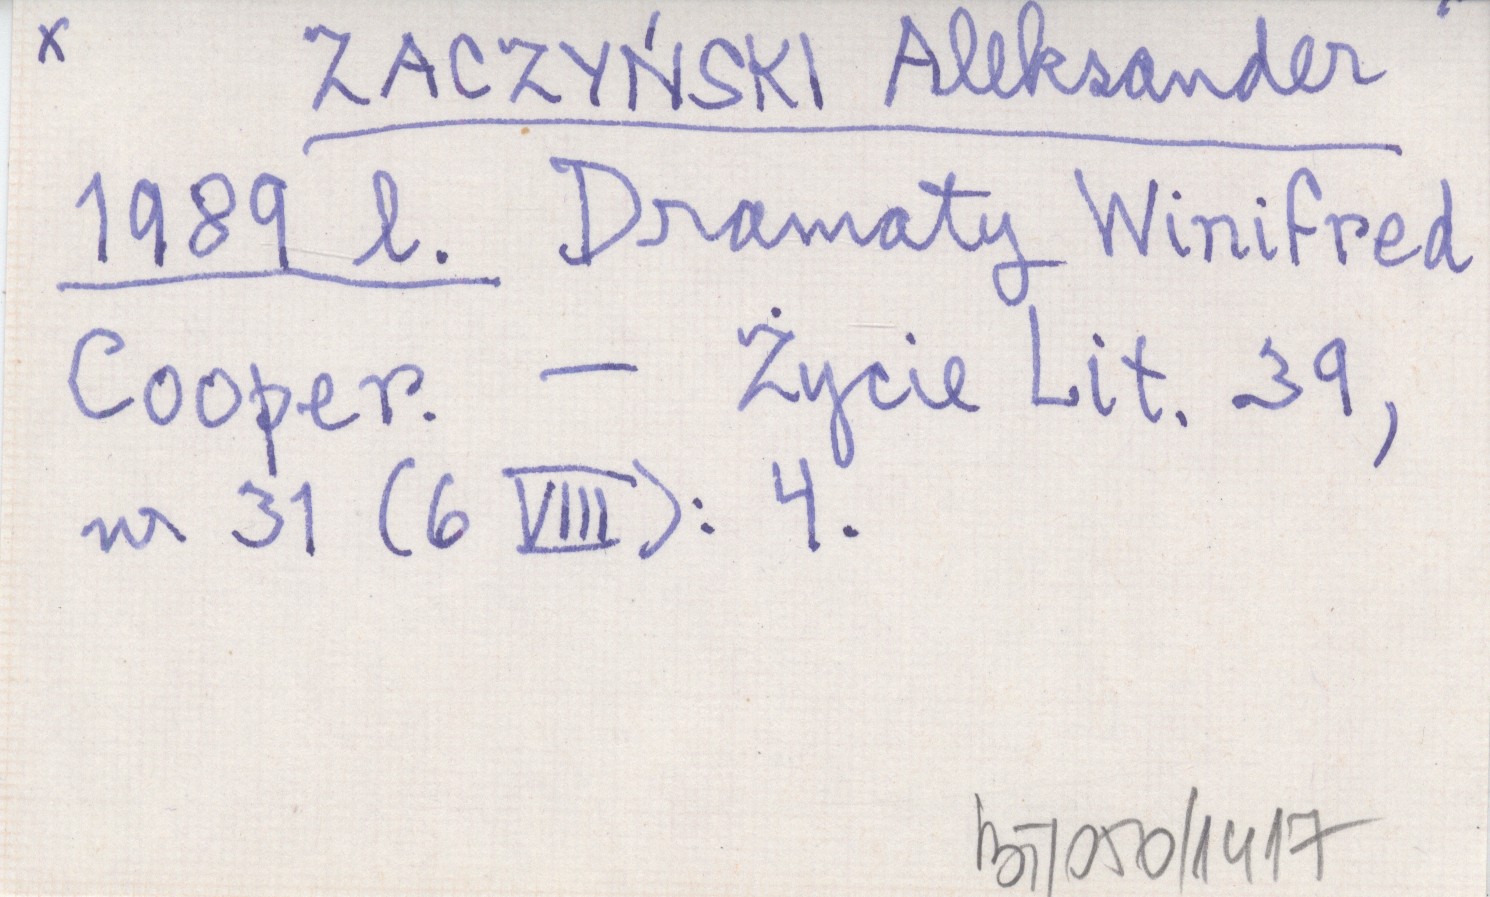 x ZACZYŃSKI Aleksander
1989 l. Dramaty Winifred
Cooper. — Życie Lit. 39,
nr 31 (6 VIII): 4.
BJ/050/1417